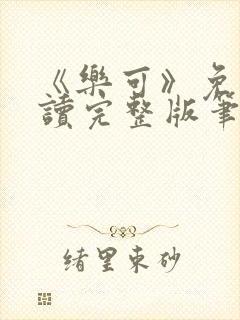 《樂可》免
讀完整版筆
緒里束砂